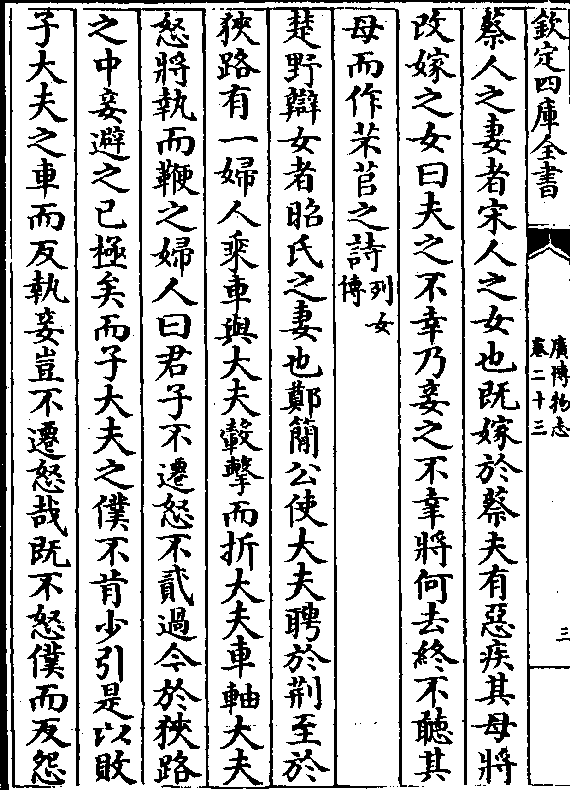 欽定四庫全書
廣博物志
卷二十三
三
蔡人之妻者宋人之女也既嫁於蔡夫有惡疾其母將
改嫁之女曰夫之不幸乃妾之不幸將何去終不聽其
母而作芣苢之詩列女
傳
楚野辯女者昭氏之妻也鄭簡公使大夫聘於荆至於
狹路有一婦人乘車與大夫轂擊而折大夫車軸大夫
怒將執而鞭之婦人曰君子不遷怒不貳過今於狹路
之中妾避之已極矣而子大夫之僕不肯少引是以敗
子大夫之車而反執妾豈不遷怒哉既不怒僕而反怨